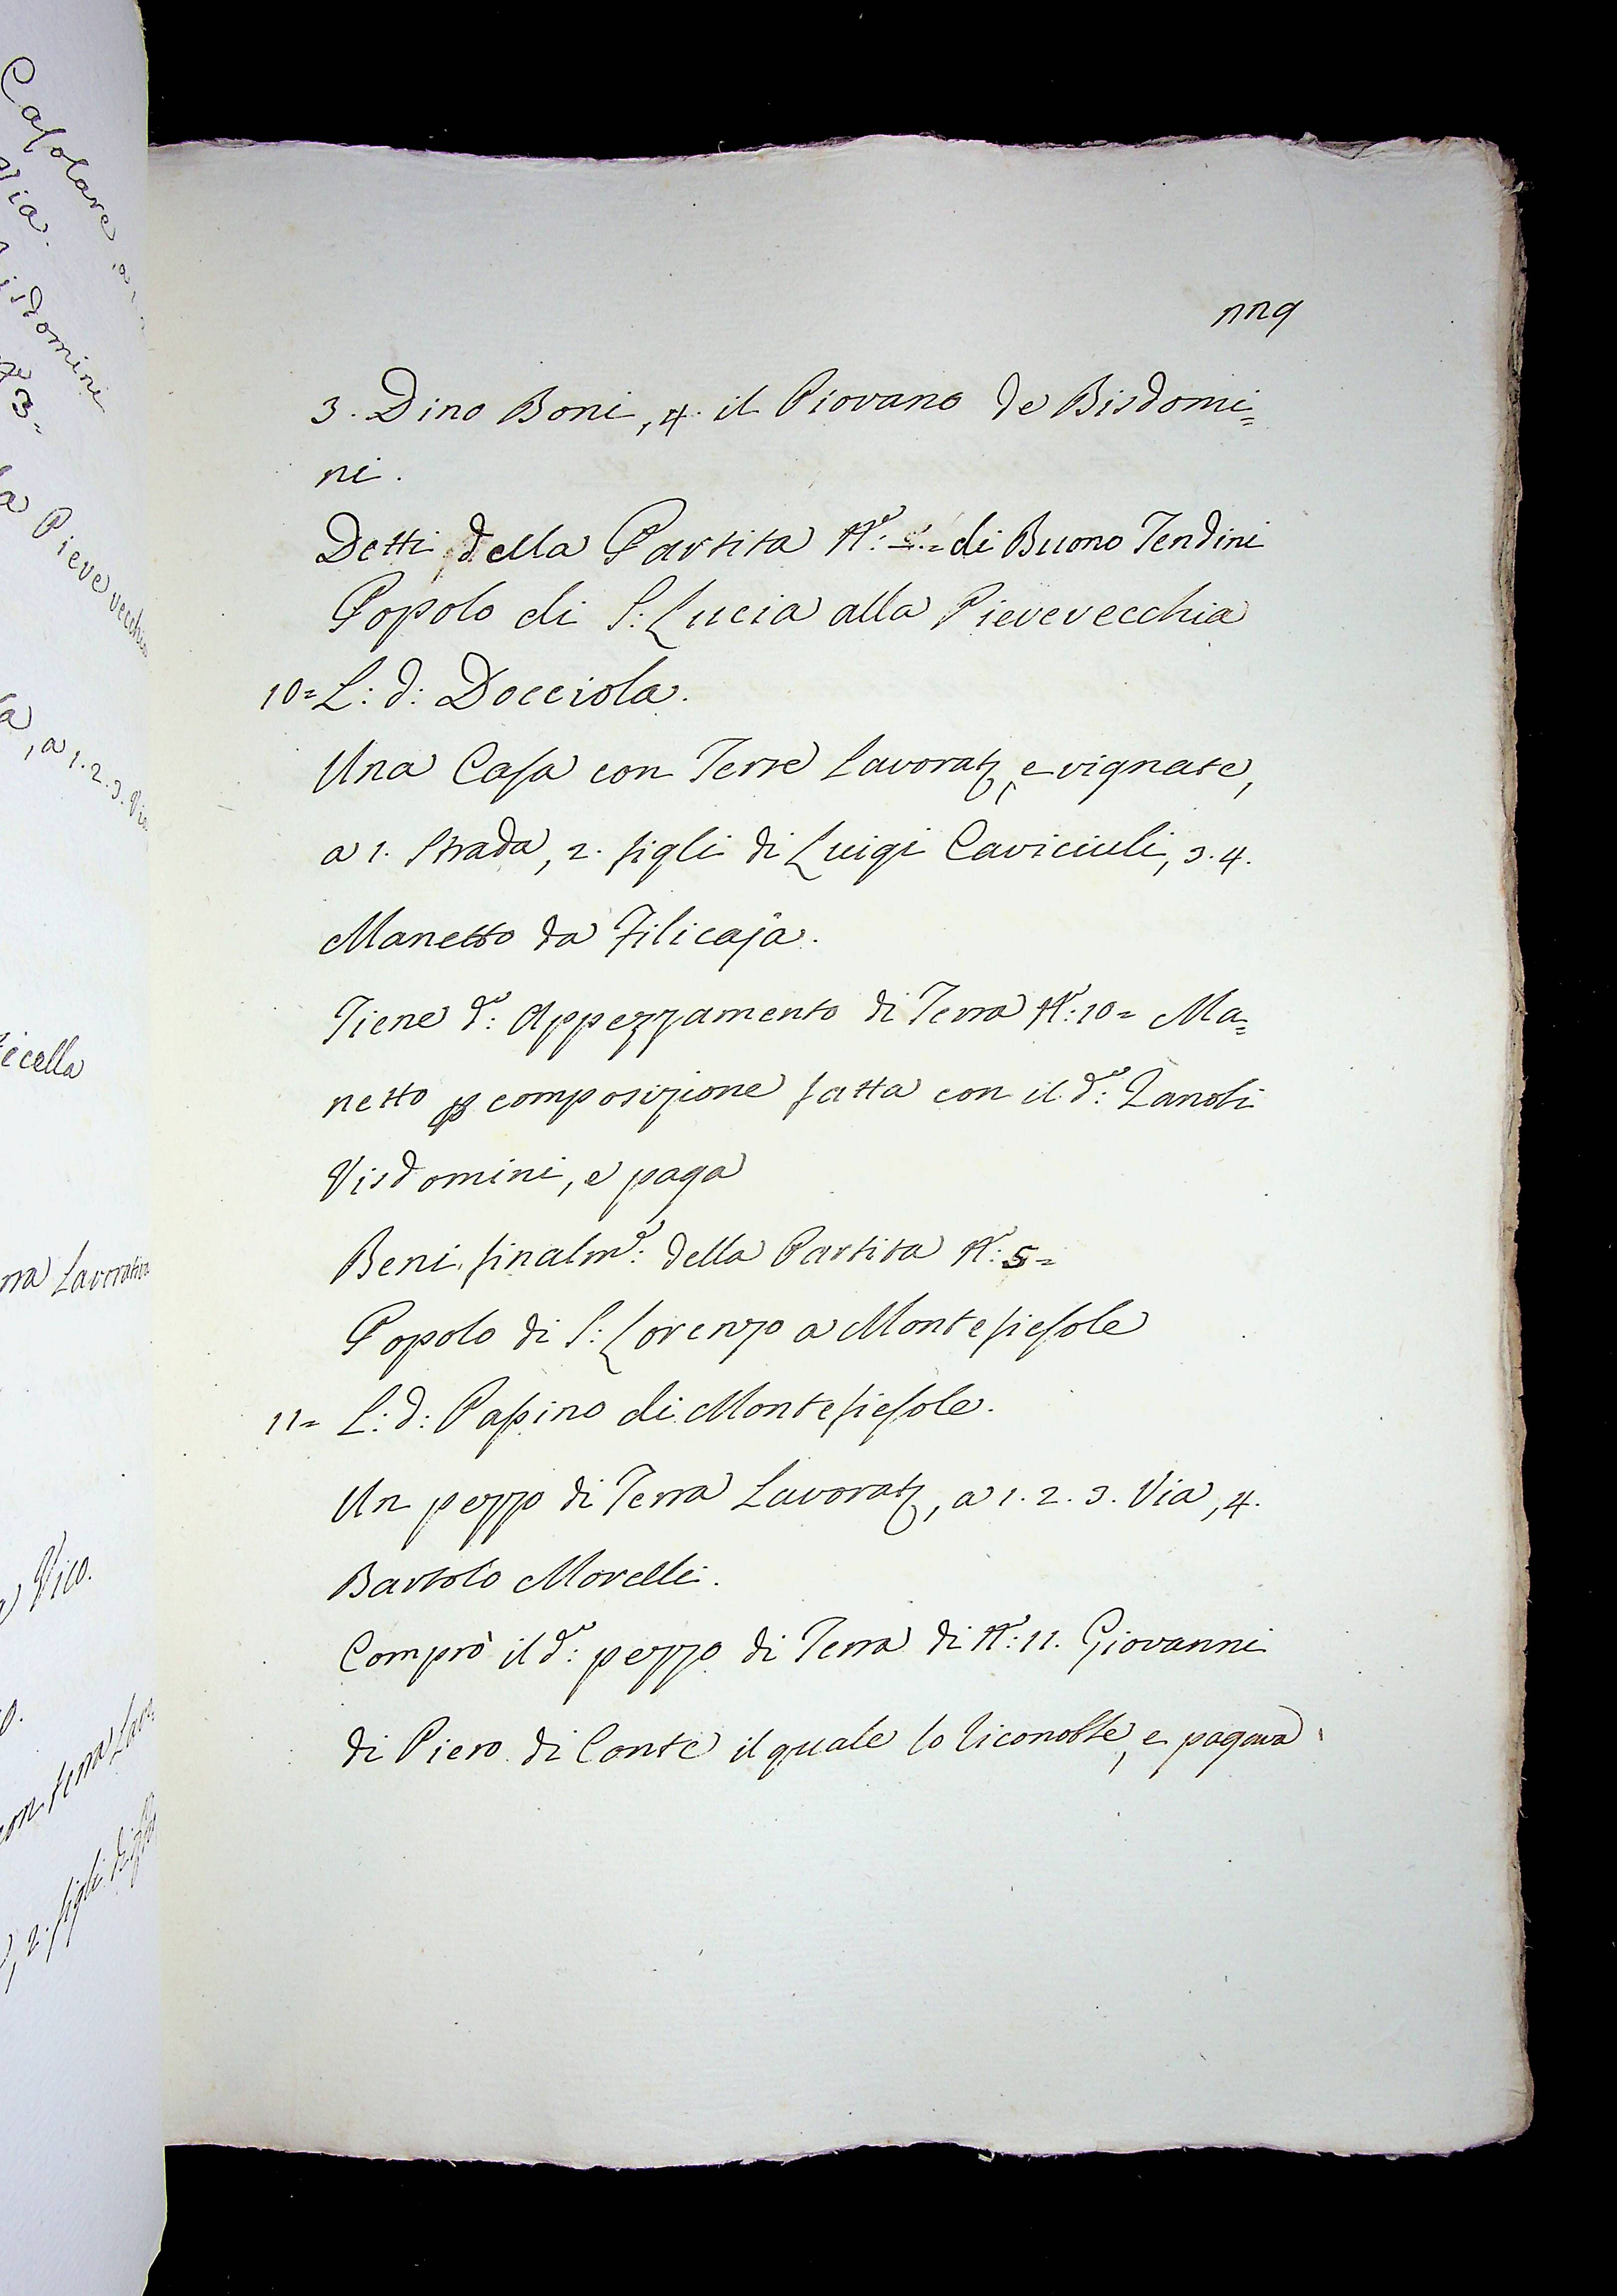 Casolare, a
glia.
isdomini
3=
la Pieve vecchia
a, a 1. 2. 3. Via
icella
rra Lavorativa
Vico.
con terra Lav
2. figli di
119
3. Dino Boni, 4. il Piovano de Bisdomi=
ni.
Detti della Partita N.º: di Buono Tendini
Popolo di S: Lucia alla Pievevecchia
10= L: d: Docciola.
Una Casa con Terre Lavorat:, e vignate,
a 1. Strada, 2. figli di Luigi Caviciuli, 3. 4.
Manetto da Filicaja.
Tiene d.º: Appezzamento di Terra N.º: 10= Ma=
netto p composizione fatta con il d.º: Zanobi
Visdomini, e paga
Beni finalm.e: della Partita N.º: 5=
Popolo di S: Lorenzo a Montefiesole
11= L: d: Passino di Montefiesole.
Un pezzo di Terra Lavorat:, a 1. 2. 3. Via, 4.
Bartolo Morelli.
Comprò il d.º: pezzo di Terra di N.º: 11. Giovanni
di Piero di Conte il quale lo riconobbe, e pagava